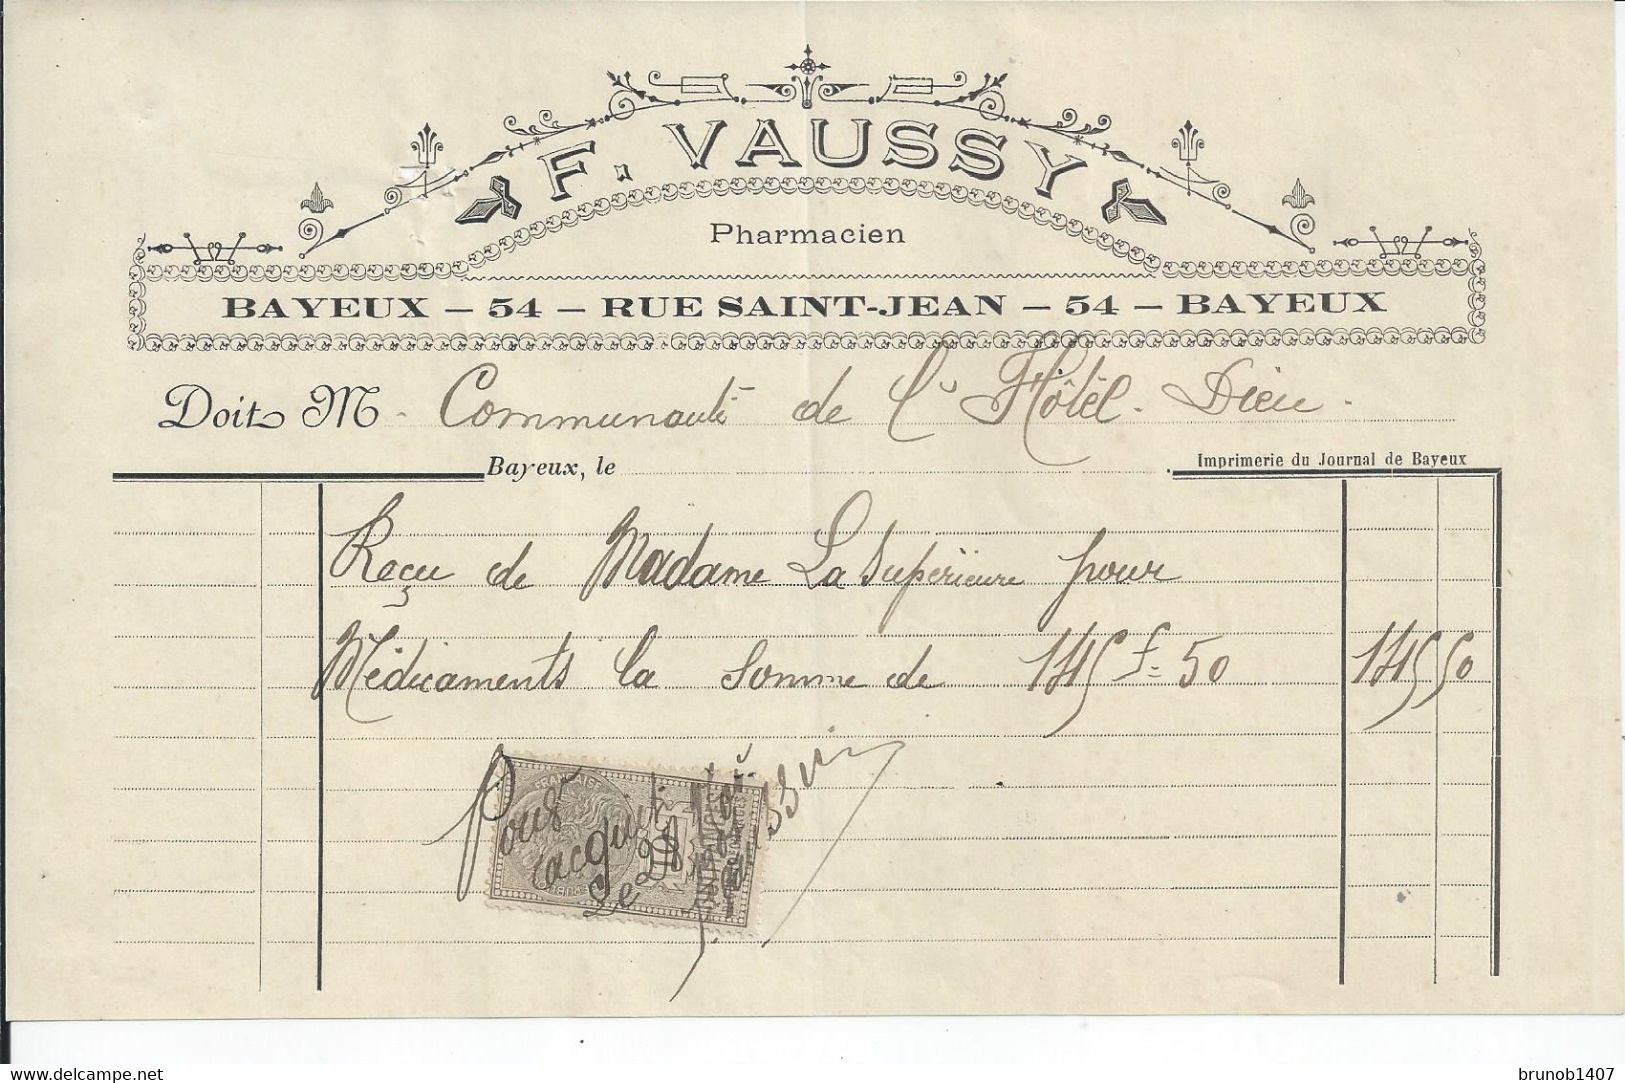 F. VAUSSY
Pharmacien
BAYEUX — 54 — RUE SAINT-JEAN — 54 — BAYEUX
Doit M - Communauté de l'Hôtel-Dieu.
Bayeux, le
Imprimerie du Journal de Bayeux
Reçu de Madame La Supérieure pour
Médicaments la Somme de 145 f= 50 145 50
FRANÇAISE
Pour
acquit
Le 28
www.delcampe.net
brunob1407